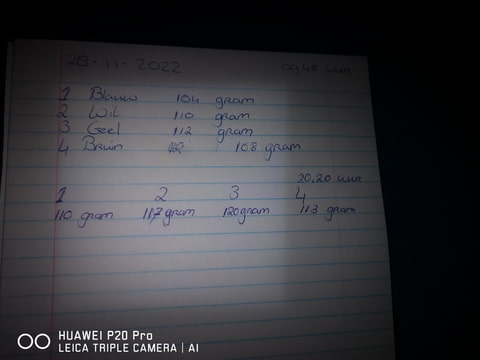 28-11-2022 09.45 uur
1 Blauw 104 gram
2 Wit 110 gram
3 Geel 112 gram
4 Bruin 108 gram
20.20 uur
1 2 3 4
110 gram 117 gram 120 gram 113 gram
HUAWEI P20 Pro
LEICA TRIPLE CAMERA | AI